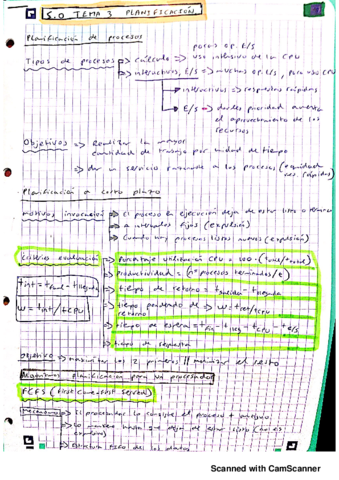 S.O TEMA 3 PLANIFICACIÓN
Planificación de procesos
pocas op. E/S
Tipos de procesos => cálculo => uso intensivo de la CPU
=> interactivos, E/S => muchas op. E/S, poco uso CPU
interactivos => respuestas rápidas
E/S => darles prioridad aumenta
el aprovechamiento de los
recursos
Objetivos => Realizar la mayor
cantidad de trabajo por unidad de tiempo
=> dar un servicio a los procesos (equidad
res. rápidas)
Planificación a corto plazo
motivos invocación => el proceso en ejecución deja de estar listo o termina
=> a intervalos fijos (expulsión)
=> Cuando hay procesos listos nuevos (expulsión)
Criterios evaluación => Porcentaje utilización CPU = 100 ·
=> Productividad = (nº procesos terminados/t)
=> tiempo de retorno =
tint = tfin - tllegada
=> tiempo de => w = tint/tCPU
retorno
w = tint/tCPU
=> tiempo de espera = tfin - tlleg - tCPU - tE/S
=> tiempo de respuesta
Objetivo => maximizar los 2 primeros // minimizar el resto
Algoritmos planificación para un procesador
FCFS (First Come First Served)
Mecanismo => El procesador lo consigue el proceso + antiguo.
=> Lo hasta que deja de estar listo (no es
=> Estructura
Scanned with CamScanner